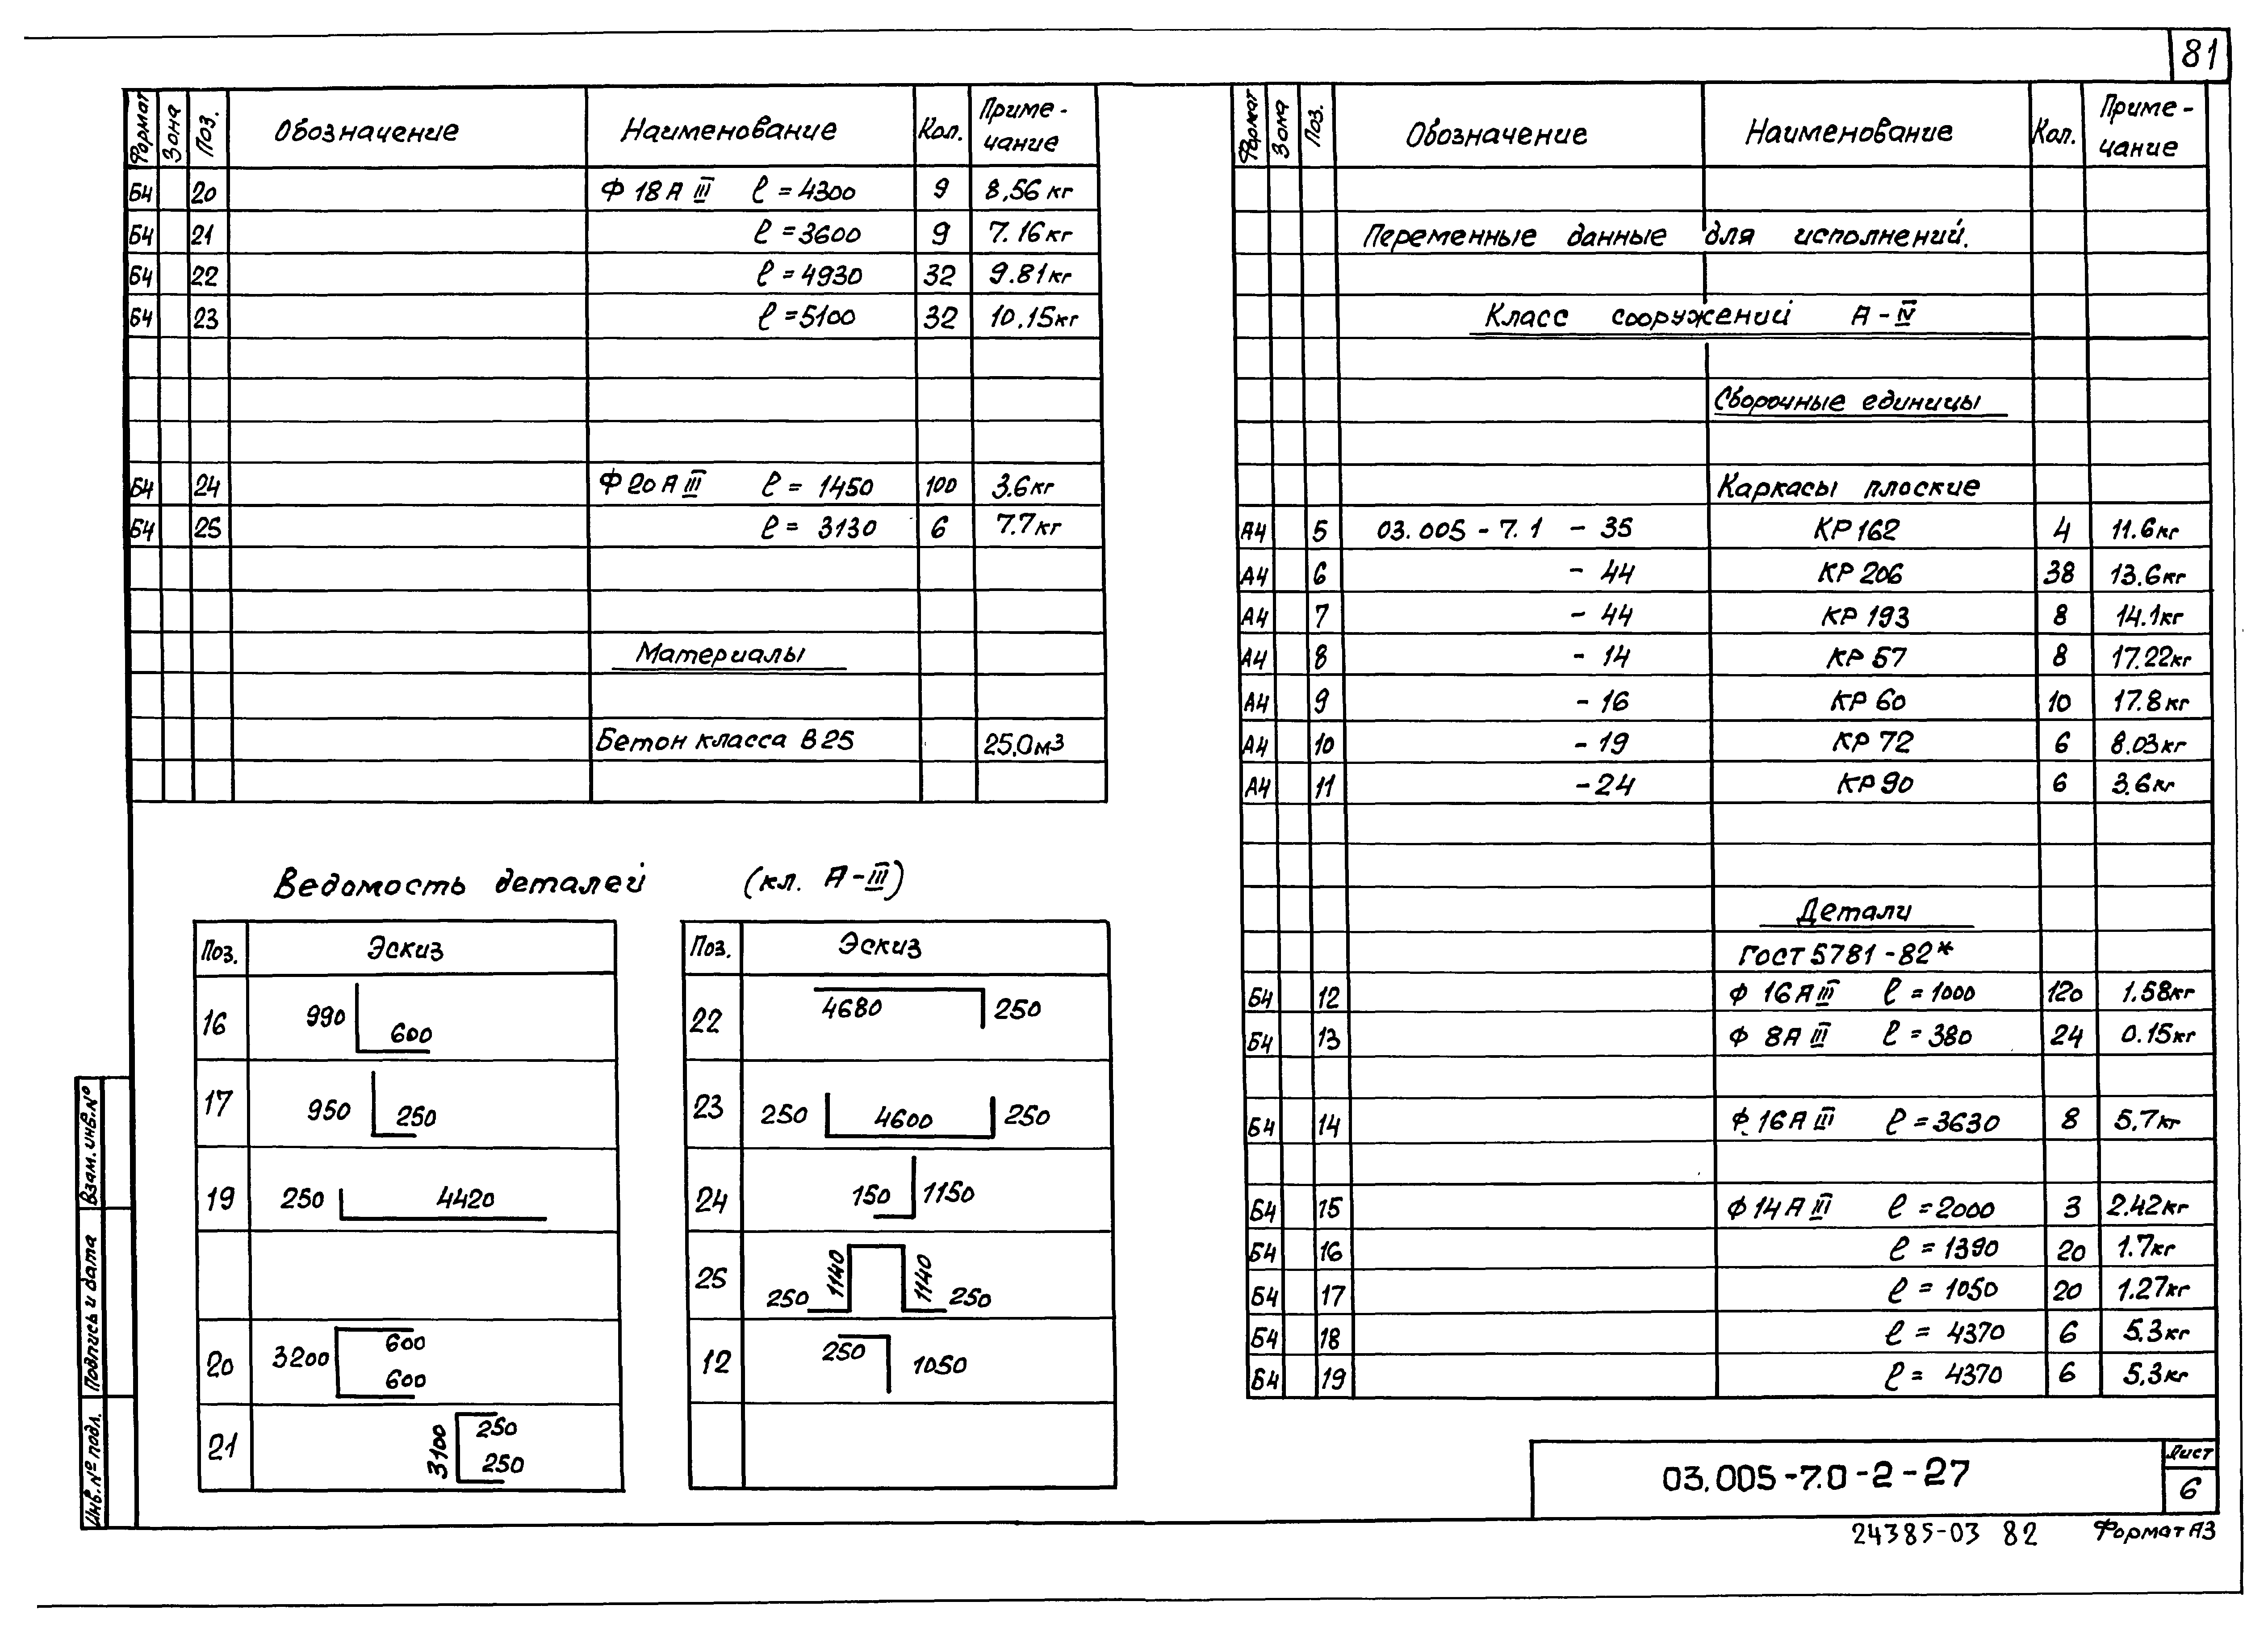 81
Формат Зона Поз. Обозначение Наименование Кол. Приме-чание
Б4 20 Ф 18 А III ℓ = 4300 9 8,56 кг
Б4 21 ℓ = 3600 9 7.16 кг
Б4 22 ℓ = 4930 32 9.81 кг
Б4 23 ℓ = 5100 32 10.15 кг
Б4 24 Ф 20 А III ℓ = 1450 100 3.6 кг
Б4 25 ℓ = 3130 6 7.7 кг
Материалы
Бетон класса В25 25,0 м3
Ведомость деталей (кл. А-III)
Поз. Эскиз
16 990 600
17 950 250
19 250 4420
20 3200 600 600
21 3100 250 250
Поз. Эскиз
22 4680 250
23 250 4600 250
24 150 1150
25 250 1140 1140 250
12 250 1050
Формат Зона Поз. Обозначение Наименование Кол. Приме-чание
Переменные данные для исполнений.
Класс сооружений А-IV
Сборочные единицы
Каркасы плоские
А4 5 03.005-7.1 - 35 КР 162 4 11.6 кг
А4 6 - 44 КР 206 38 13.6 кг
А4 7 - 44 КР 193 8 14.1 кг
А4 8 - 14 КР 57 8 17.22 кг
А4 9 - 16 КР 60 10 17.8 кг
А4 10 - 19 КР 72 6 8.03 кг
А4 11 - 24 КР 90 6 3.6 кг
Детали
ГОСТ 5781-82*
Б4 12 Ф 16 А III ℓ = 1000 120 1.58 кг
Б4 13 Ф 8 А III ℓ = 380 24 0.15 кг
Б4 14 Ф 16 А III ℓ = 3630 8 5.7 кг
Б4 15 Ф 14 А III ℓ = 2000 3 2.42 кг
Б4 16 ℓ = 1390 20 1.7 кг
Б4 17 ℓ = 1050 20 1.27 кг
Б4 18 ℓ = 4370 6 5.3 кг
Б4 19 ℓ = 4370 6 5.3 кг
Взам. инв. №
Подпись и дата
Инв. № подл.
03.005-7.0-2-27
Лист
6
24385-03 82 Формат А3